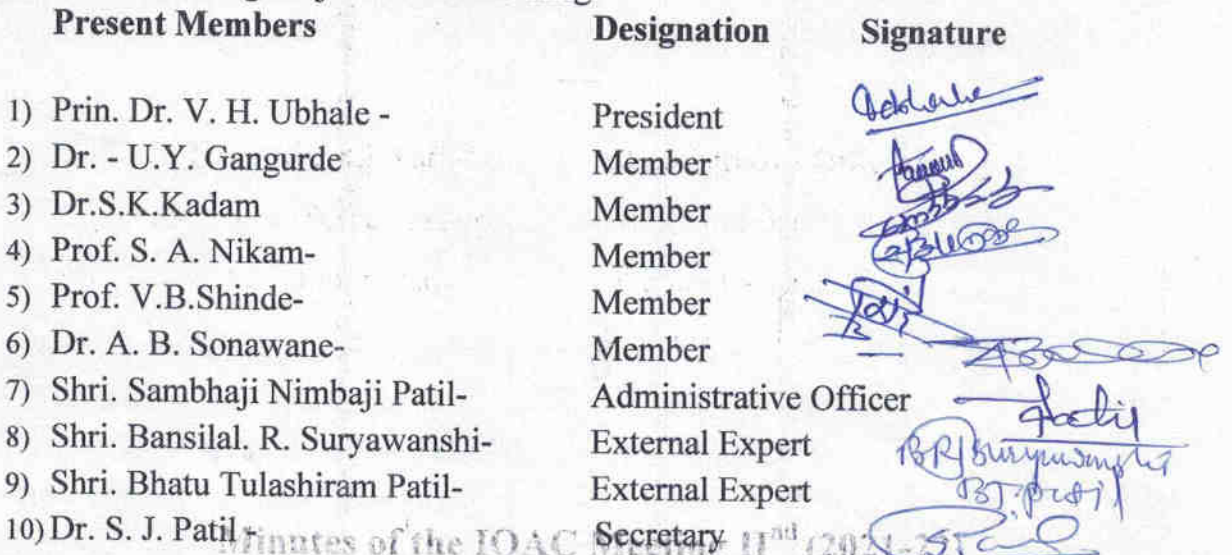 Present Members Designation Signature
1) Prin. Dr. V. H. Ubhale - President
2) Dr. - U.Y. Gangurde Member
3) Dr.S.K.Kadam Member
4) Prof. S. A. Nikam- Member
5) Prof. V.B.Shinde- Member
6) Dr. A. B. Sonawane- Member
7) Shri. Sambhaji Nimbaji Patil- Administrative Officer
8) Shri. Bansilal. R. Suryawanshi- External Expert BRSuryawanshi
9) Shri. Bhatu Tulashiram Patil- External Expert BT.patil
10) Dr. S. J. Patil - Secretary
Minutes of the IQAC Meeting IInd